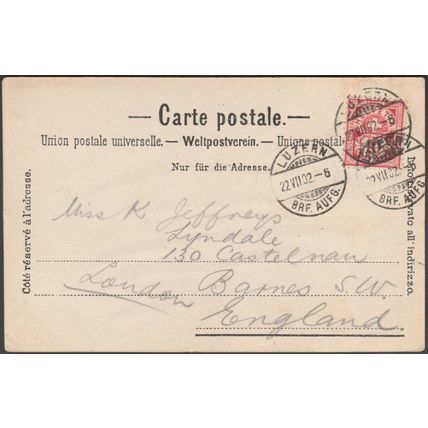 — Carte postale. —
Union postale universelle. — Weltpostverein. — Unione postal
Nur für die Adresse.
Côté réservé à l'adresse.
LUZERN
22.VII.02.–6
BRF. AUFG.
LUZERN
22.VII.02.–6
22.VII.02.
BRF. AUFG.
all' indirizzo.
Miss K Jeffreys
Lyndale
130 Castelnau
Barnes S.W.
London
England.